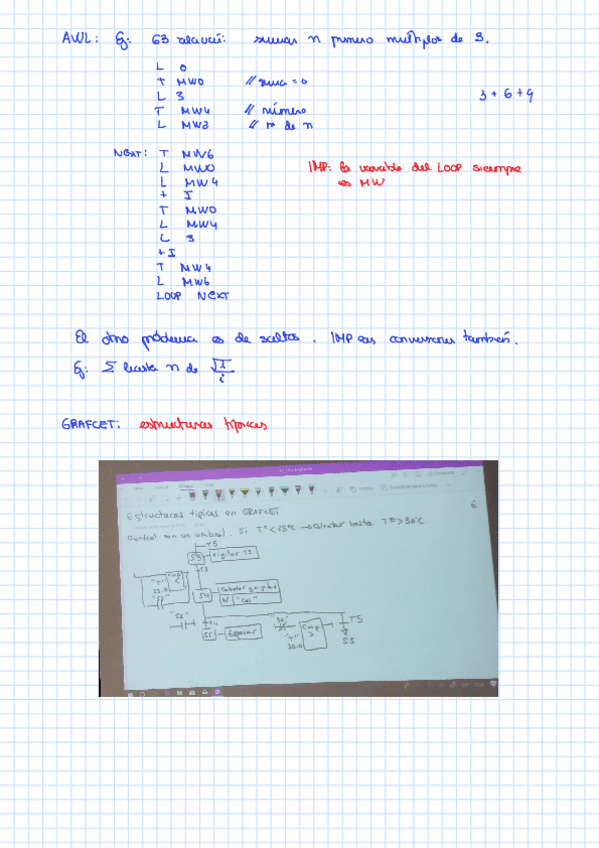 AWL: Ej: 63 alauai: sumar n primero multiplos de 3.
L 0
T MW0 // suma = 0
L 3 3 + 6 + 9
T MW4 // número
L MW2 // nº de n
NEXT: T MW6
L MW0 IMP: la variable del LOOP siempre
L MW4 es MW
+ I
T MW0
L MW4
L 3
+ I
T MW4
L MW6
LOOP NEXT
El otro problema es de saltos. IMP las conversiones también.
Ej: Σ hasta n de √i/i
GRAFCET: estructuras típicas
Estructuras típicas en GRAFCET
Control con un umbral. Si Tª < 25ºC → calentar hasta Tª > 30ºC
T5
S3 Vigilar Tª
T3
S4
N "Cal"
"SE"
T4 T5
S5 Esperar Cmp >
"T"
30.0 S3